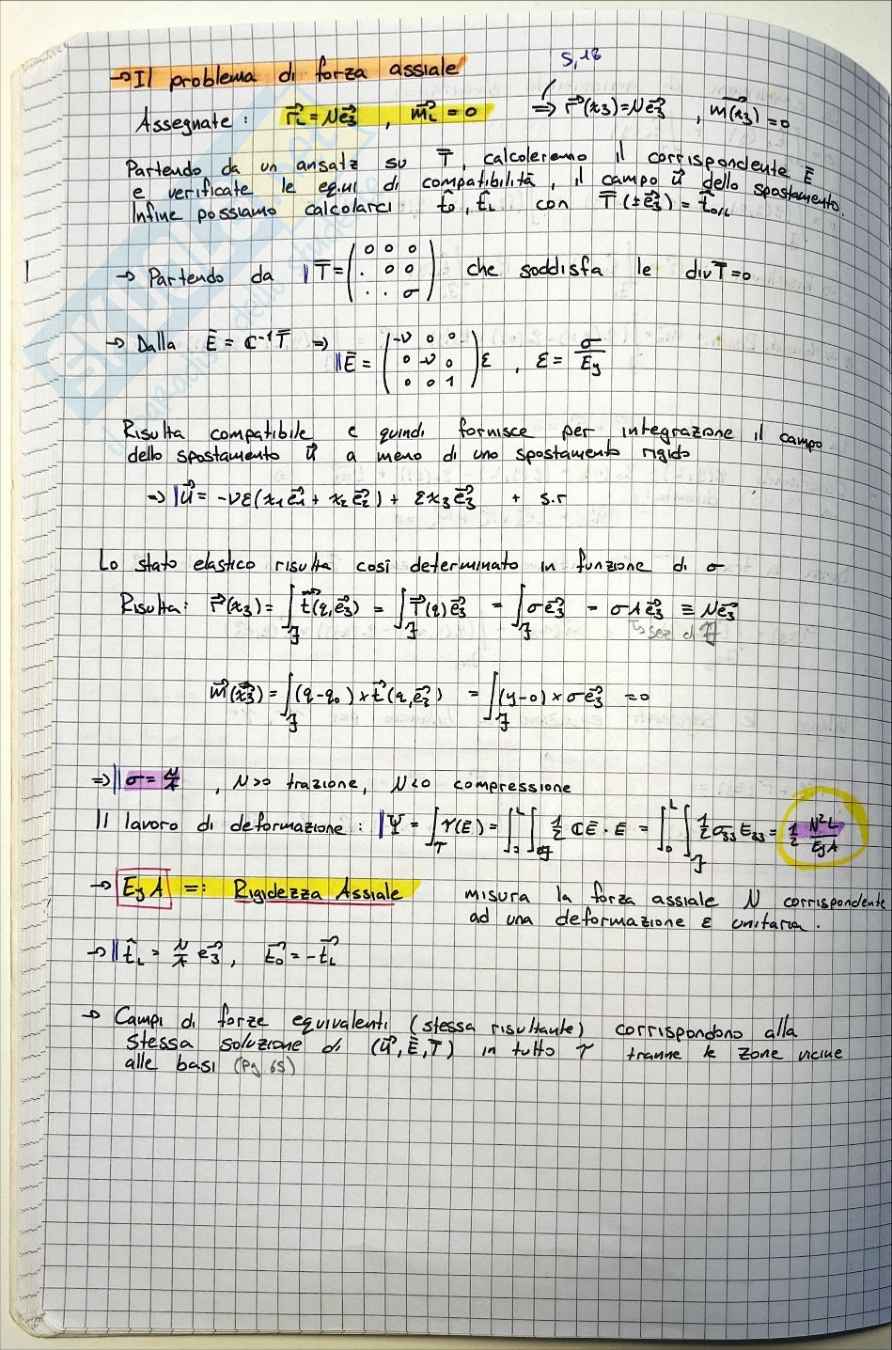 → Il problema di forza assiale
5,18
Assegnate: r⃗_L = Ne⃗₃ , m⃗_L = 0 ⇒ r⃗(x₃)=Ne⃗₃ , m⃗(x₃)=0
Partendo da un ansatz su T̄, calcoleremo il corrispondente Ē
e verificate le eq.ui di compatibilità, il campo u⃗ dello spostamento.
Infine possiamo calcolarci t̂₀, t̂_L con T̄(±e⃗₃) = t̂_0/L
→ Partendo da T̄ = (0 0 0 / . 0 0 / . . σ) che soddisfa le div T̄=0
→ Dalla Ē = ℂ⁻¹T̄ ⇒ Ē = (-ν 0 0 / 0 -ν 0 / 0 0 1) ε , ε = σ/E_y
Risulta compatibile e quindi fornisce per integrazione il campo
dello spostamento u⃗ a meno di uno spostamento rigido
⇒ u⃗ = -νε(x₁e⃗₁ + x₂e⃗₂) + εx₃e⃗₃ + s.r
Lo stato elastico risulta così determinato in funzione di σ
Risulta: r⃗(x₃) = ∫_F t⃗(q,e⃗₃) = ∫_F T̄(q)e⃗₃ = ∫_F σe⃗₃ = σAe⃗₃ ≡ Ne⃗₃
↳ sez di F
m⃗(x₃) = ∫_F (q-q₀) × t⃗(q,e⃗₃) = ∫_F (y-0) × σe⃗₃ = 0
⇒ σ = N/A , N>0 trazione, N<0 compressione
Il lavoro di deformazione: Ψ = ∫_T Υ(E) = ∫₀^L ∫_F ½ ℂĒ · E = ∫₀^L ∫_F ½ σ₃₃ E₃₃ = ½ N²L/E_yA
→ E_y A =: Rigidezza Assiale misura la forza assiale N corrispondente
ad una deformazione ε unitaria.
→ t̂_L = N/A e⃗₃, t⃗₀ = -t⃗_L
→ Campi di forze equivalenti (stessa risultante) corrispondono alla
stessa soluzione di (u⃗, Ē, T) in tutto T tranne le zone vicine
alle basi (Pg 65)